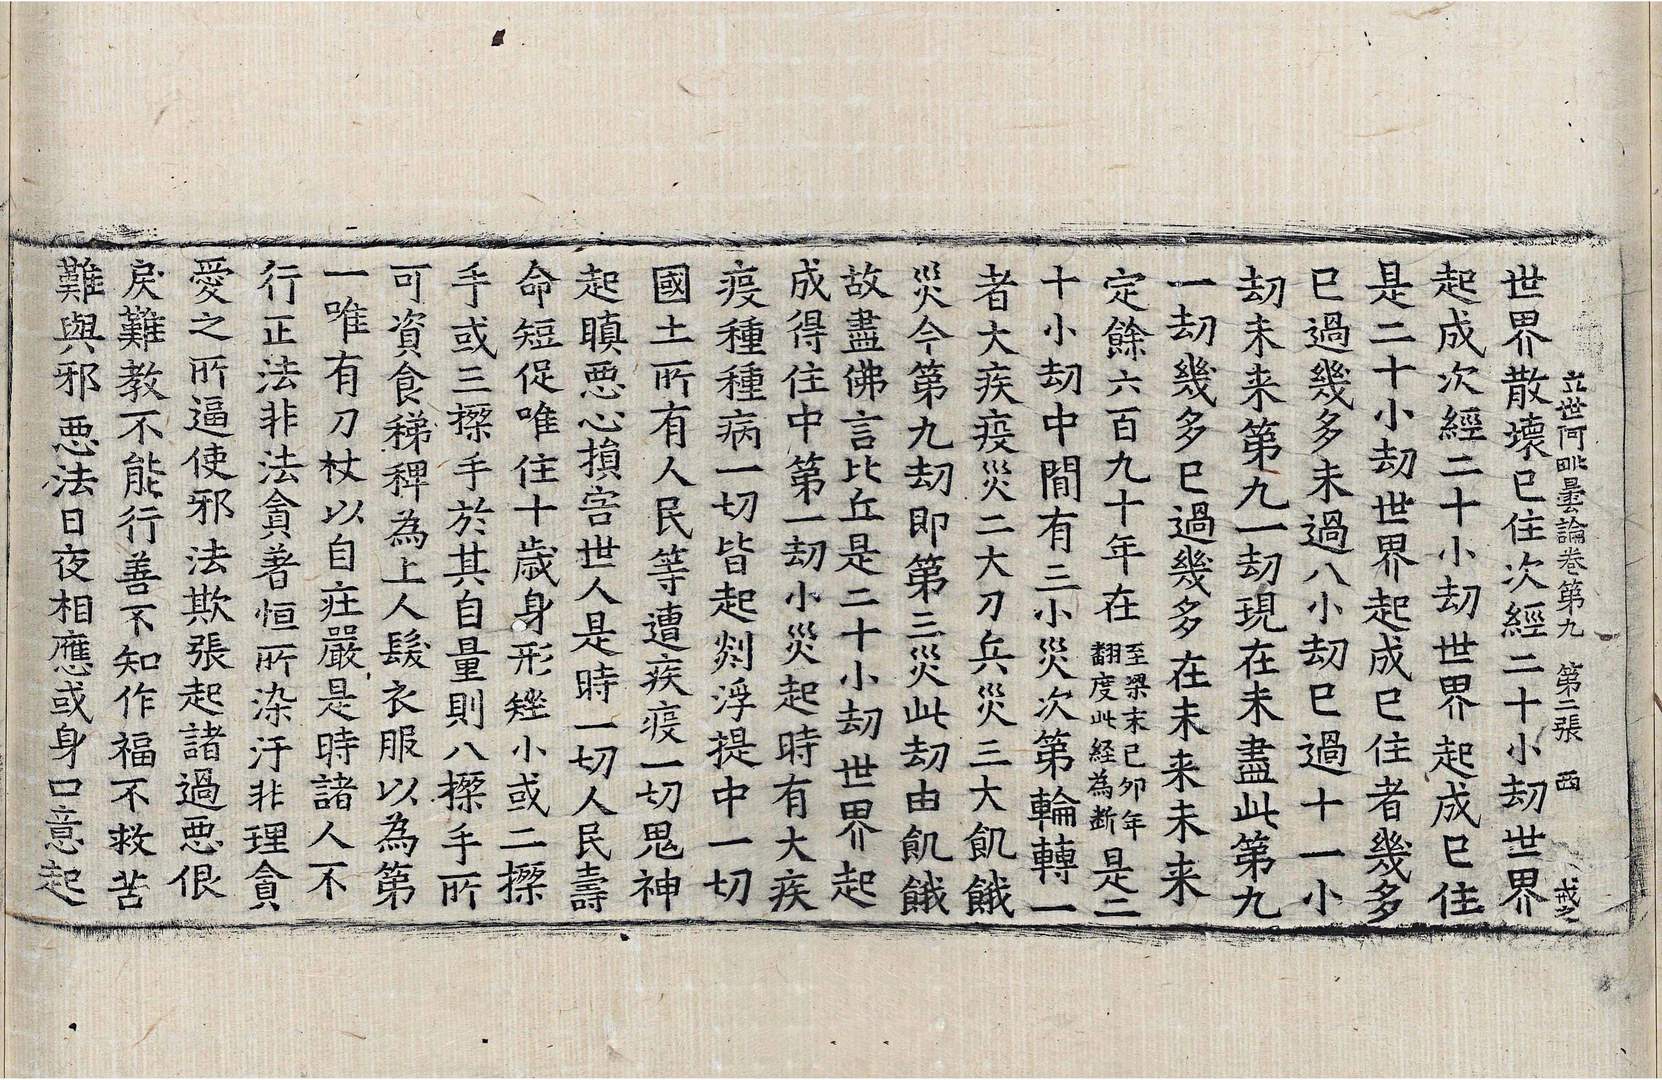 立世阿毗曇論卷第九 第二張 西 戒之
世界散壞已住次經二十小劫世界
起成次經二十小劫世界起成已住
是二十小劫世界起成已住者幾多
已過幾多未過八小劫已過十一小
劫未来第九一劫現在未盡此第九
一劫幾多已過幾多在未来未来
定餘六百九十年在至梁末已卯年翻度此経為断是二
十小劫中間有三小災次第輪轉一
者大疾疫災二大刀兵災三大飢餓
災今第九劫即第三災此劫由飢餓
故盡佛言比丘是二十小劫世界起
成得住中第一劫小災起時有大疾
疫種種病一切皆起剡浮提中一切
國土所有人民等遭疾疫一切鬼神
起瞋惡心損害世人是時一切人民壽
命短促唯住十歳身形矬小或二搩
手或三搩手於其自量則八搩手所
可資食稊稗為上人髮衣服以為第
一唯有刀杖以自莊嚴是時諸人不
行正法非法貪著恒所染汙非理貪
愛之所逼使邪法欺張起諸過惡佷
戾難教不能行善不知作福不救苦
難與邪惡法日夜相應或身口意起